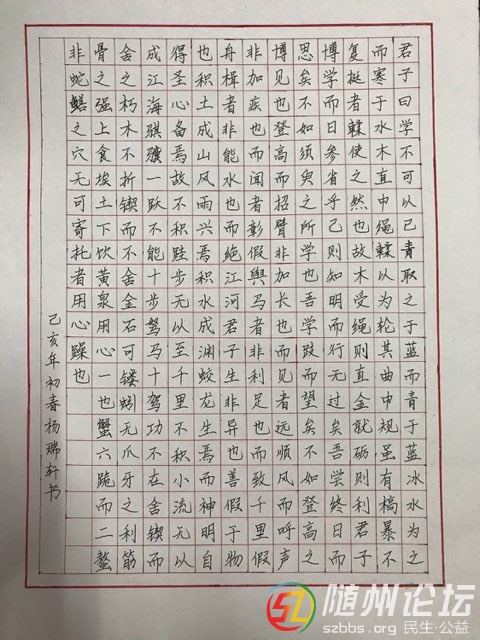 君子曰学不可以已青取之于蓝而青于蓝冰水为之
而寒于水木直中绳輮以为轮其曲中规虽有槁暴不
复挺者輮使之然也故木受绳则直金就砺则利君子
博学而日参省乎己则知明而行无过矣吾尝终日而
思矣不如须臾之所学也吾尝跂而望矣不如登高之
博见也登高而招臂非加长也而见者远顺风而呼声
非加疾也而闻者彰假舆马者非利足也而致千里假
舟楫者非能水也而绝江河君子生非异也善假于物
也积土成山风雨兴焉积水成渊蛟龙生焉而神明自
得圣心备焉故不积跬步无以至千里不积小流无以
成江海骐骥一跃不能十步驽马十驾功不在舍锲而
舍之朽木不折锲而不舍金石可镂蚓无爪牙之利筋
骨之强上食埃土下饮黄泉用心一也蟹六跪而二螯
非蛇鳝之穴无可寄托者用心躁也
己亥年初春杨瑞轩书
随州论坛
szbbs.org 民生·公益